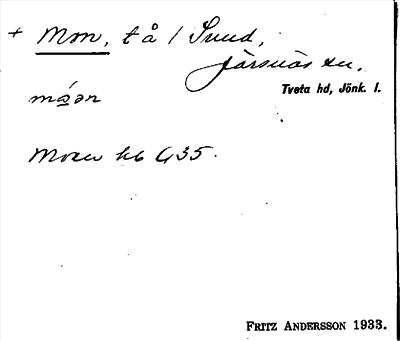 + Mon, t å 1 Sund,
Järsnäs sn,
Tveta hd, Jönk. l.
Moen hb G35.
FRITZ ANDERSSON 1933.